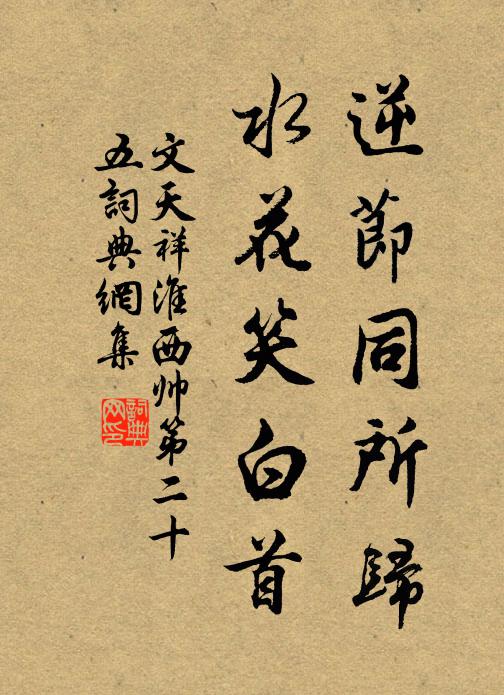 逆節同所歸
水花笑白首
文天祥淮西帅第二十
五詞典網集
詞典
网印